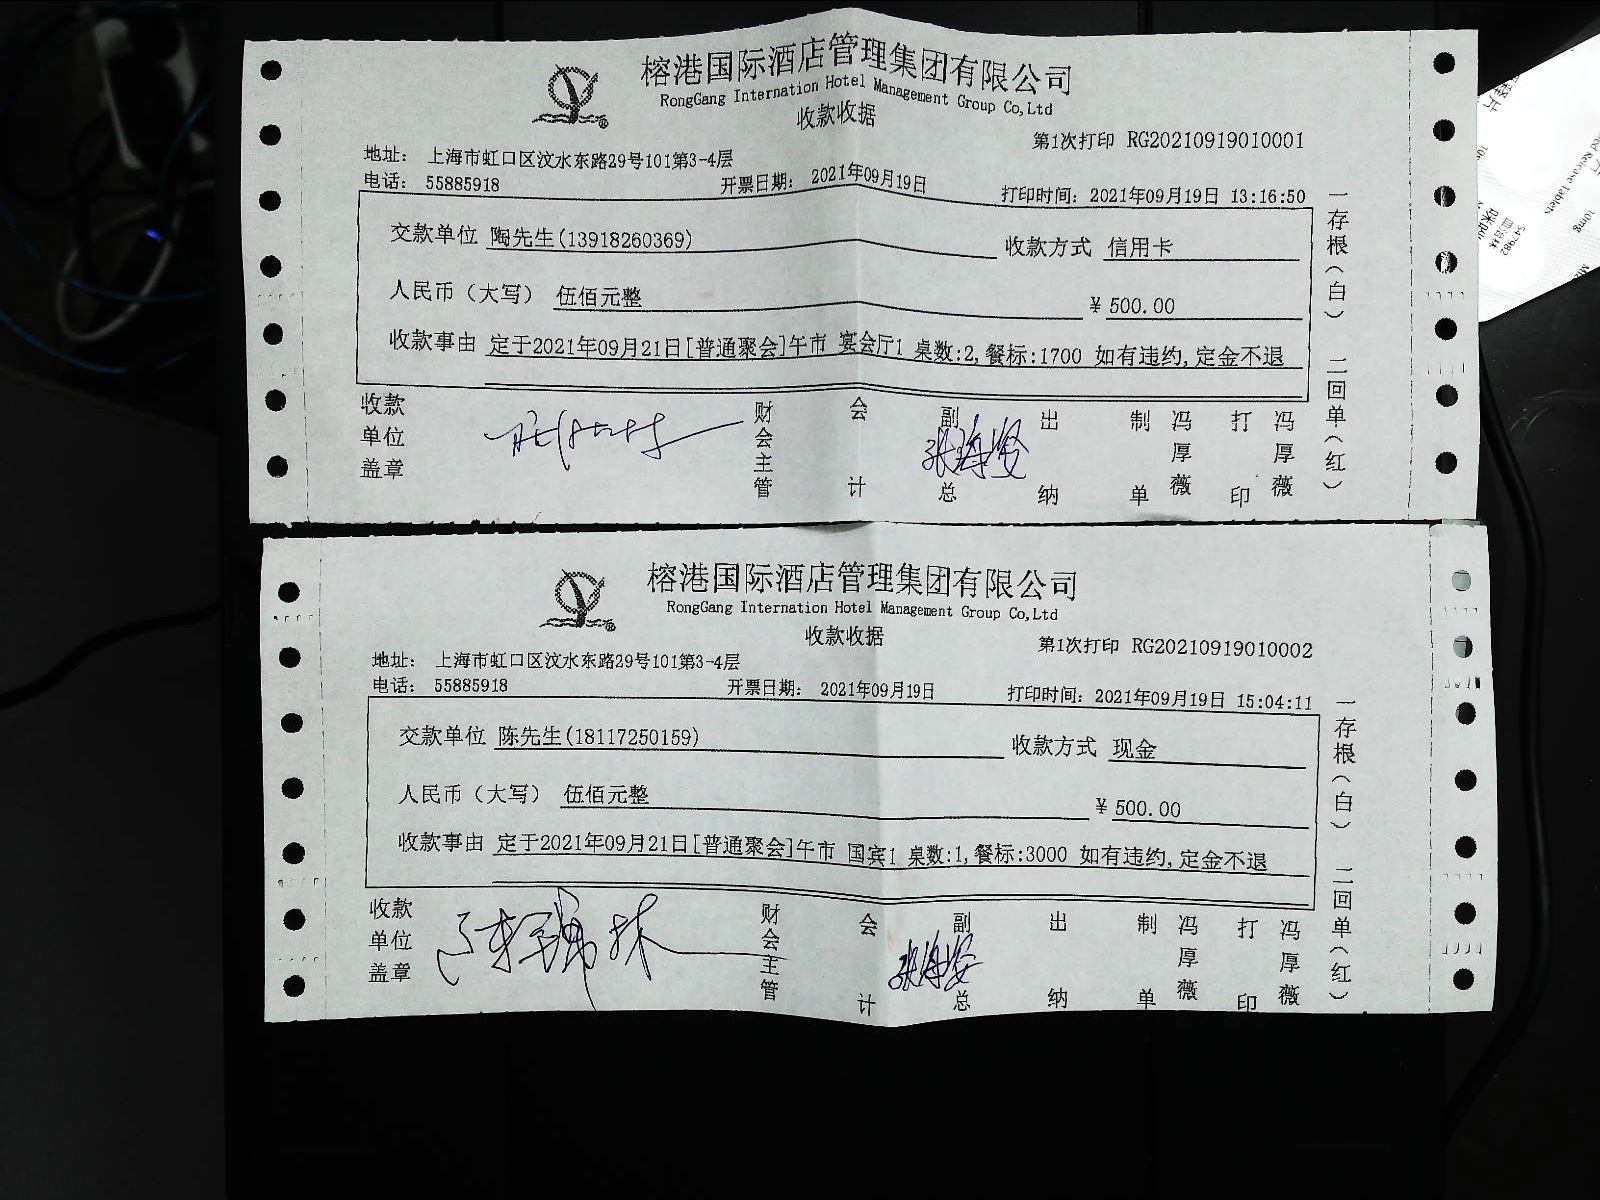 榕港国际酒店管理集团有限公司
RongGang Internation Hotel Management Group Co,Ltd
收款收据
第1次打印 RG20210919010001
地址： 上海市虹口区汶水东路29号101第3-4层
电话： 55885918 开票日期： 2021年09月19日 打印时间： 2021年09月19日 13:16:50
交款单位 陶先生(13918260369) 收款方式 信用卡
人民币（大写） 伍佰元整 ¥ 500.00
收款事由 定于2021年09月21日[普通聚会]午市 宴会厅1 桌数:2,餐标:1700 如有违约,定金不退
一存根（白） 二回单（红）
收款单位盖章 财会主管 会计 副总 出纳 制单 冯厚薇 打印 冯厚薇
榕港国际酒店管理集团有限公司
RongGang Internation Hotel Management Group Co,Ltd
收款收据
第1次打印 RG20210919010002
地址： 上海市虹口区汶水东路29号101第3-4层
电话： 55885918 开票日期： 2021年09月19日 打印时间： 2021年09月19日 15:04:11
交款单位 陈先生(18117250159) 收款方式 现金
人民币（大写） 伍佰元整 ¥ 500.00
收款事由 定于2021年09月21日[普通聚会]午市 国宾1 桌数:1,餐标:3000 如有违约,定金不退
一存根（白） 二回单（红）
收款单位盖章 财会主管 会计 副总 出纳 制单 冯厚薇 打印 冯厚薇
Tablets
10mg
547982